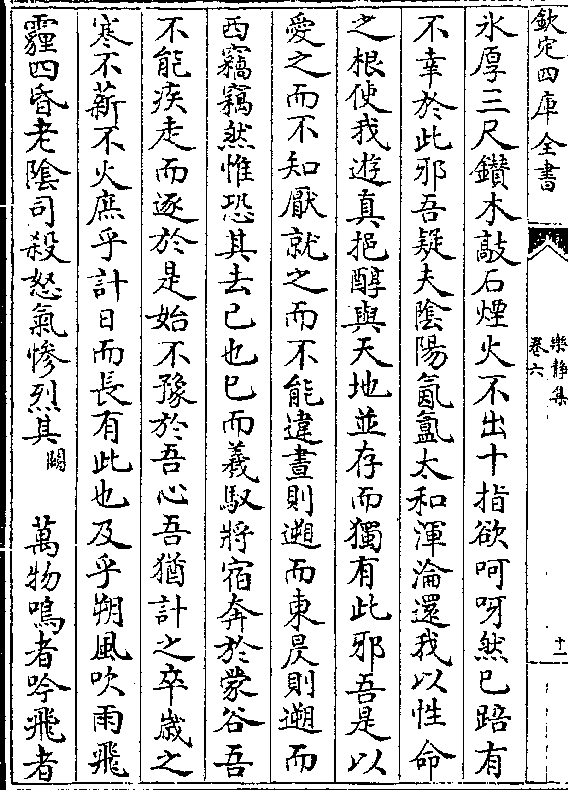 欽定四庫全書
樂静集
卷六
十一
氷厚三尺鑽木敲石煙火不出十指欲呵呀然已踣有
不幸於此邪吾疑夫陰陽氤氲太和渾淪還我以性命
之根使我遊真挹醇與天地並存而獨有此邪吾是以
愛之而不知厭就之而不能違晝則遡而東昃則遡而
西竊竊然惟恐其去已也已而羲馭將宿奔於蒙谷吾
不能疾走而逐於是始不豫於吾心吾猶計之卒歳之
寒不薪不火庶乎計日而長有此也及乎朔風吹雨飛
霾四昏老陰司殺怒氣惨烈其闕萬物鳴者吟飛者